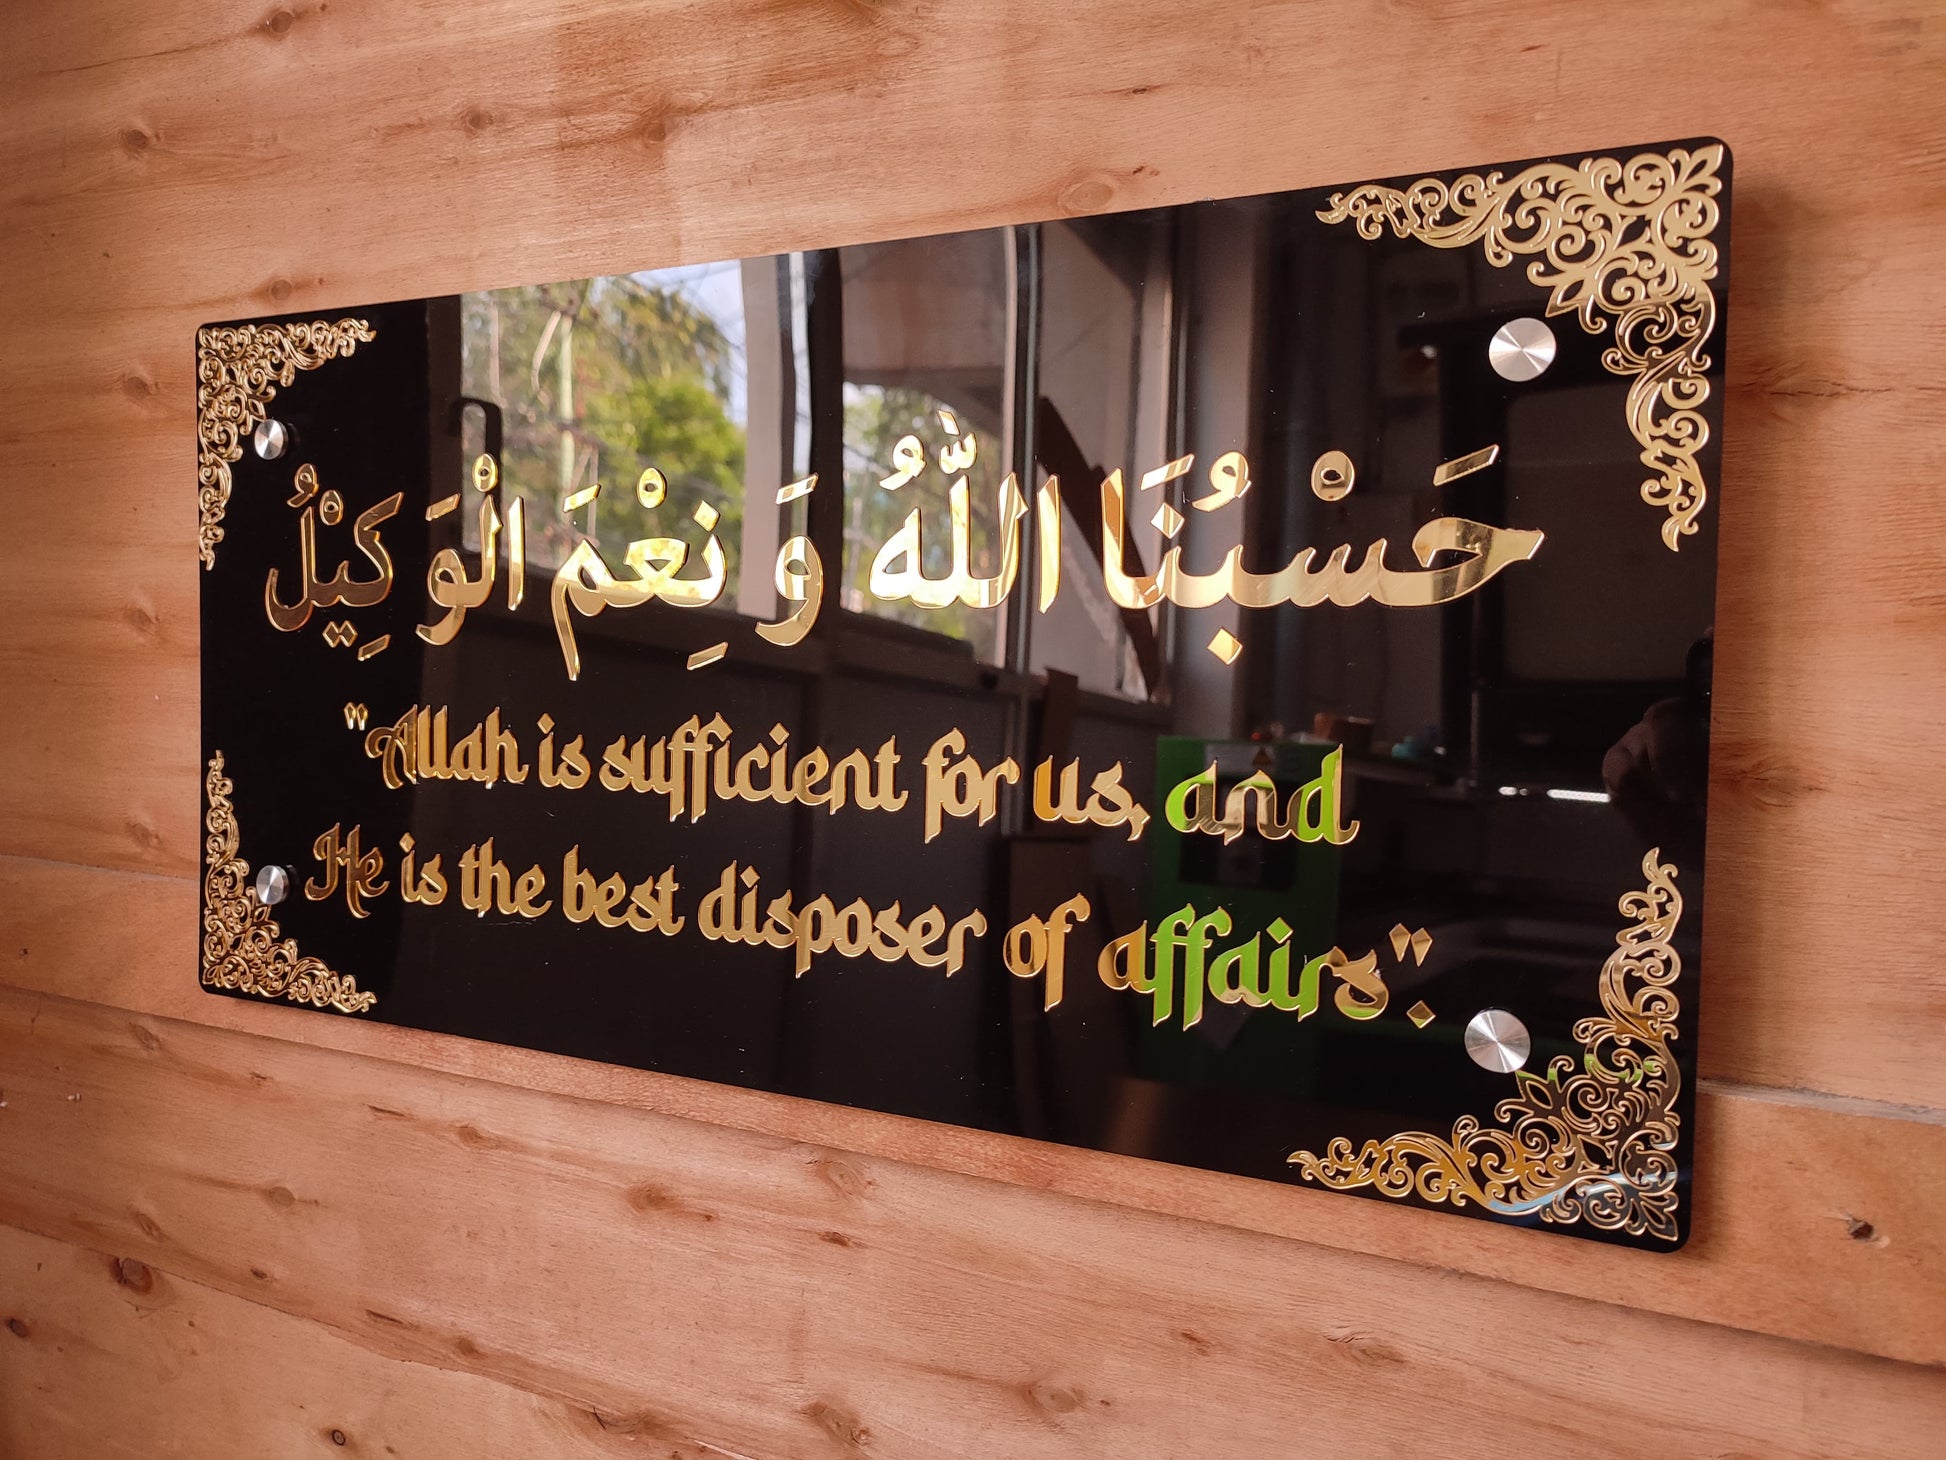 حَسْبُنَا اللّٰهُ وَّ نِعْمَ الْوَكِيْلُ
"Allah is sufficient for us, and
He is the best disposer of affairs".